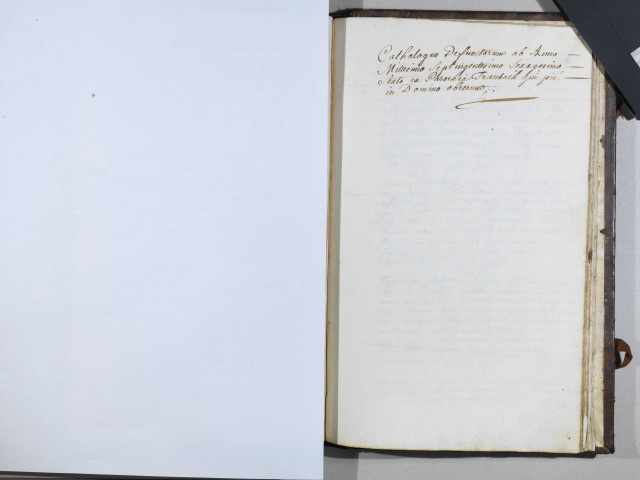 Cathalogus Defunctorum ab Anno
Millesimo Septingentesimo Sexagesimo
Sexto ex Parochia Fraubach qui pie
in Domino obierunt.